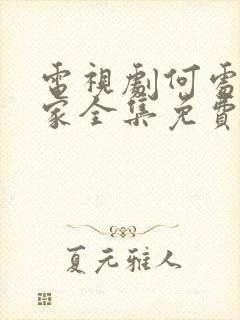 電視劇何需
家全集免費
夏元雅人